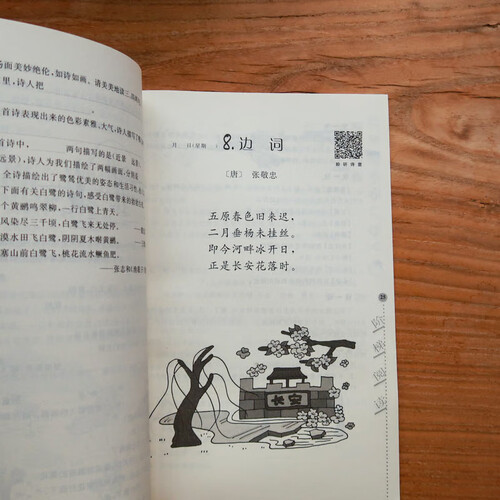 而美妙绝伦，如诗如画。请美美地读三
里，诗人把
首诗表现出来的色彩素雅、大气，诗人
首诗中， 两句描写的是(近景 远
远景)，诗人为我们描绘了两幅画面，
全诗描绘了鹭鸶优美的姿态和生活习性，
下面有关白鹭的诗句，感受白鹭带来的
个黄鹂鸣翠柳，一行白鹭上青天。
风染尽三千顷，白鹭飞来无处停。
漠水田飞白鹭，阴阴夏木啭黄鹂。
塞山前白鹭飞，桃花流水鳜鱼肥。
——张志和《渔歌子
月 日(星期 )
8.边 词
〔唐〕 张敬忠
五原春色旧来迟，
二月垂杨未挂丝。
即今河畔冰开日，
正是长安花落时。
长安